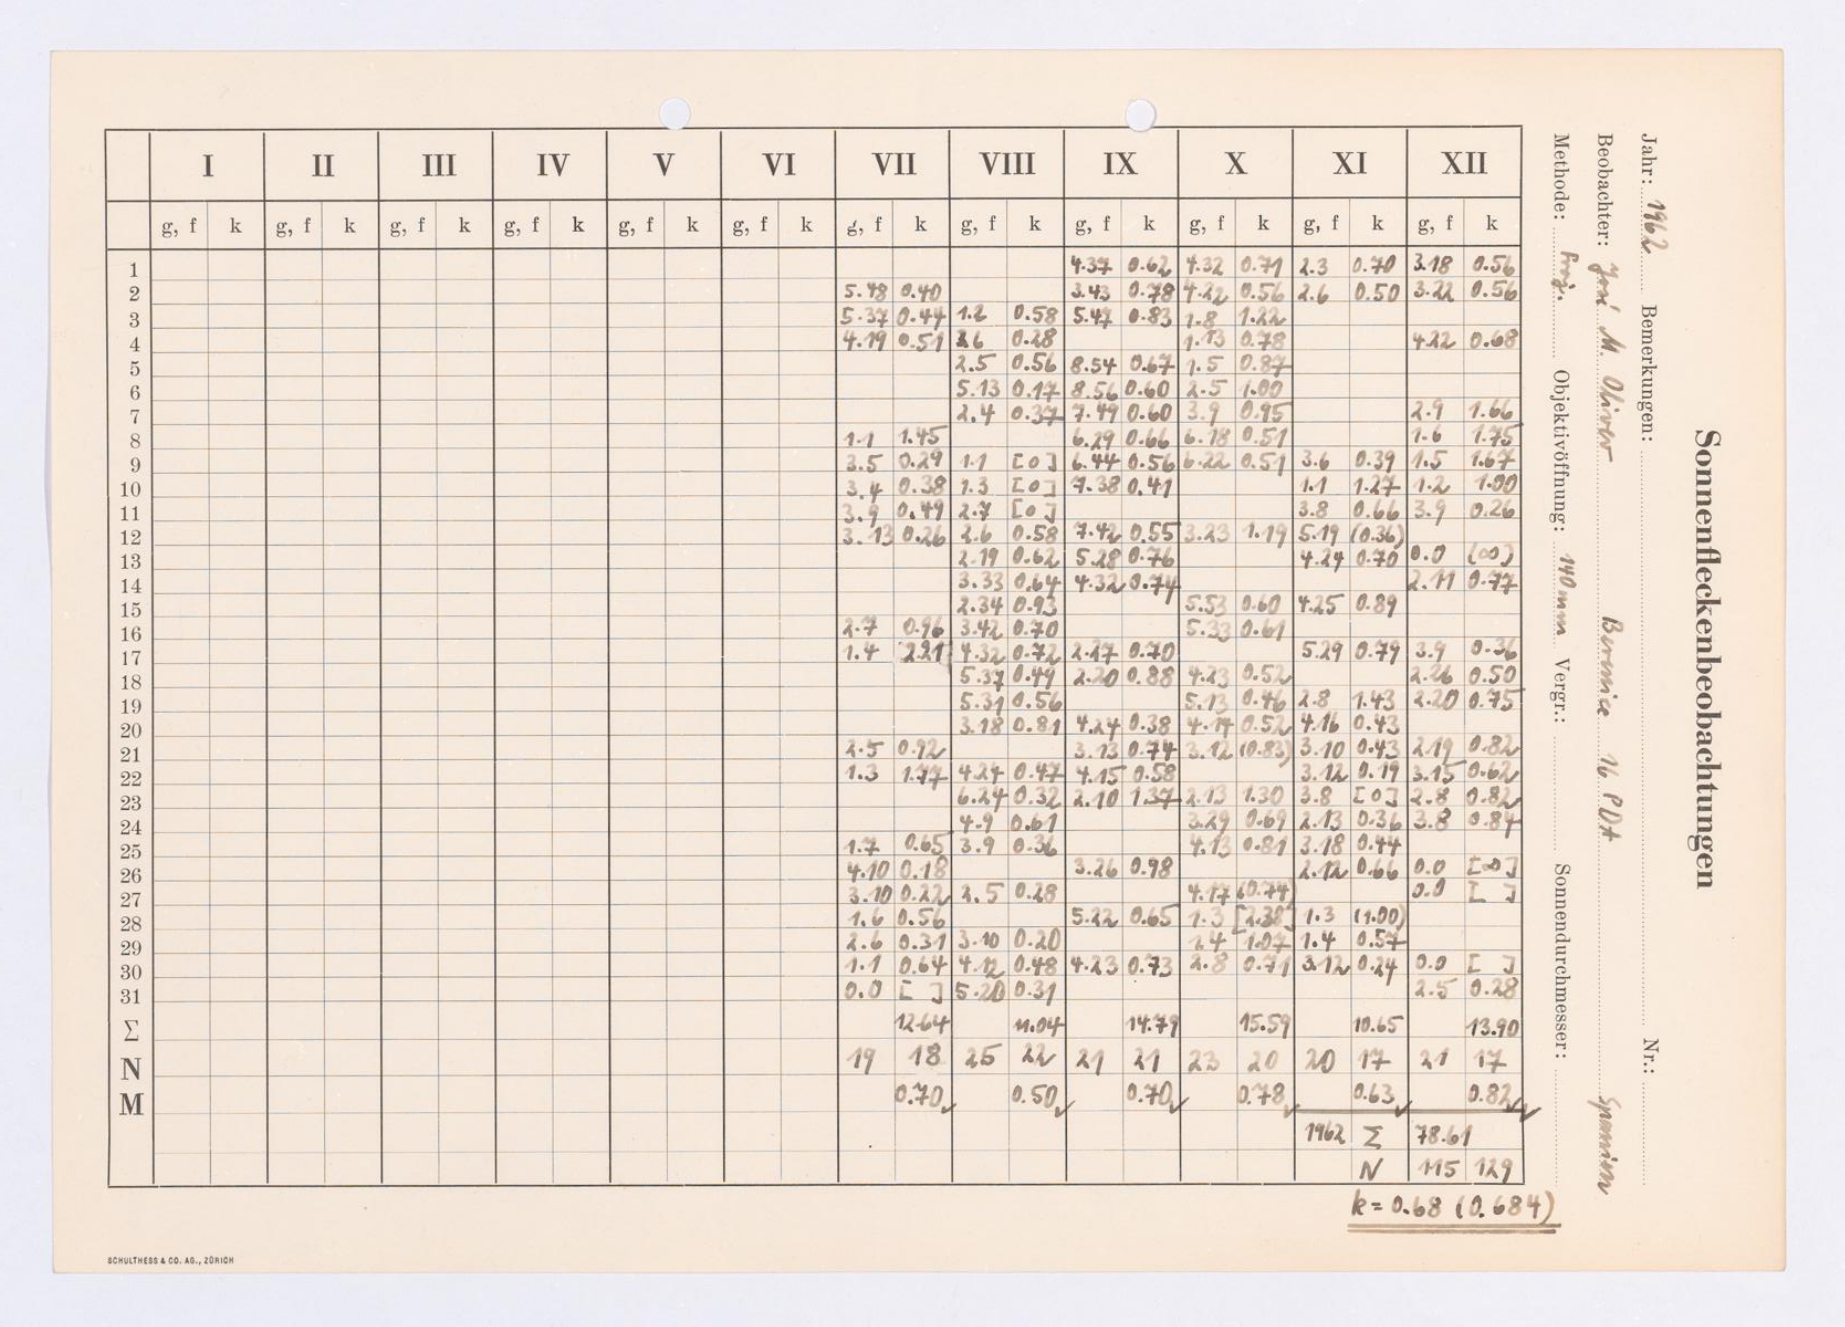 Sonnenfleckenbeobachtungen
Jahr: 1962 Bemerkungen: Nr.:
Beobachter: José M. Oliver Bernice 16 PDA Spanien
Methode: Proj. Objektivöffnung: 140 mm Vergr.: Sonnendurchmesser:
I II III IV V VI VII VIII IX X XI XII
g, f k g, f k g, f k g, f k g, f k g, f k g, f k g, f k g, f k g, f k g, f k g, f k
1 4.37 0.62 4.32 0.71 2.3 0.70 3.18 0.56
2 5.48 0.40 3.43 0.78 4.22 0.56 2.6 0.50 3.22 0.56
3 5.37 0.44 1.2 0.58 5.47 0.83 1.8 1.22
4 4.19 0.51 0.28 1.13 0.78 4.22 0.68
5 2.5 0.56 8.54 0.67 1.5 0.87
6 5.13 0.17 8.56 0.60 2.5 1.00
7 2.4 0.37 7.49 0.60 3.9 0.95 2.9 1.66
8 1.1 1.45 6.29 0.66 6.18 0.51 1.6 1.75
9 3.5 0.29 1.1 [0] 6.44 0.56 6.22 0.51 3.6 0.39 1.5 1.67
10 3.4 0.38 1.3 [0] 7.38 0.41 1.1 1.27 1.2 1.00
11 3.9 0.49 2.7 [0] 3.8 0.66 3.9 0.26
12 3.13 0.26 2.6 0.58 7.42 0.55 3.23 1.19 5.19 (0.36)
13 2.19 0.62 5.28 0.76 4.24 0.70 0.0 (∞)
14 3.33 0.64 4.32 0.74 2.11 0.77
15 2.34 0.93 5.53 0.60 4.25 0.89
16 2.7 0.96 3.42 0.70 5.33 0.61
17 1.4 2.21 4.32 0.72 2.27 0.70 5.29 0.79 3.9 0.36
18 5.37 0.49 2.20 0.88 4.23 0.52 2.26 0.50
19 5.31 0.56 5.13 0.46 2.8 1.43 2.20 0.75
20 3.18 0.81 4.24 0.38 4.14 0.52 4.16 0.43
21 2.5 0.92 3.13 0.74 3.12 (0.83) 3.10 0.43 2.19 0.82
22 1.3 1.77 4.24 0.47 4.15 0.58 3.12 0.19 3.15 0.62
23 6.24 0.32 2.10 1.37 2.13 1.30 3.8 [0] 2.8 0.82
24 4.9 0.61 3.29 0.69 2.13 0.36 3.8 0.84
25 1.7 0.65 3.9 0.36 4.13 0.81 3.18 0.44
26 4.10 0.18 3.26 0.98 2.12 0.66 0.0 [∞]
27 3.10 0.22 2.5 0.28 4.17 (0.74) 0.0 [ ]
28 1.6 0.56 5.22 0.65 1.3 [2.38] 1.3 (1.00)
29 2.6 0.31 3.10 0.20 1.4 1.07 1.4 0.57
30 1.1 0.64 4.12 0.48 4.23 0.73 2.8 0.71 3.12 0.24 0.0 [ ]
31 0.0 [ ] 5.20 0.31 2.5 0.28
Σ 12.64 11.04 14.79 15.59 10.65 13.90
N 19 18 25 22 21 21 23 20 20 17 21 17
M 0.70 0.50 0.70 0.78 0.63 0.82
1962 Σ 78.61
N 115 129
k = 0.68 (0.684)
SCHULTHESS & CO. AG., ZÜRICH